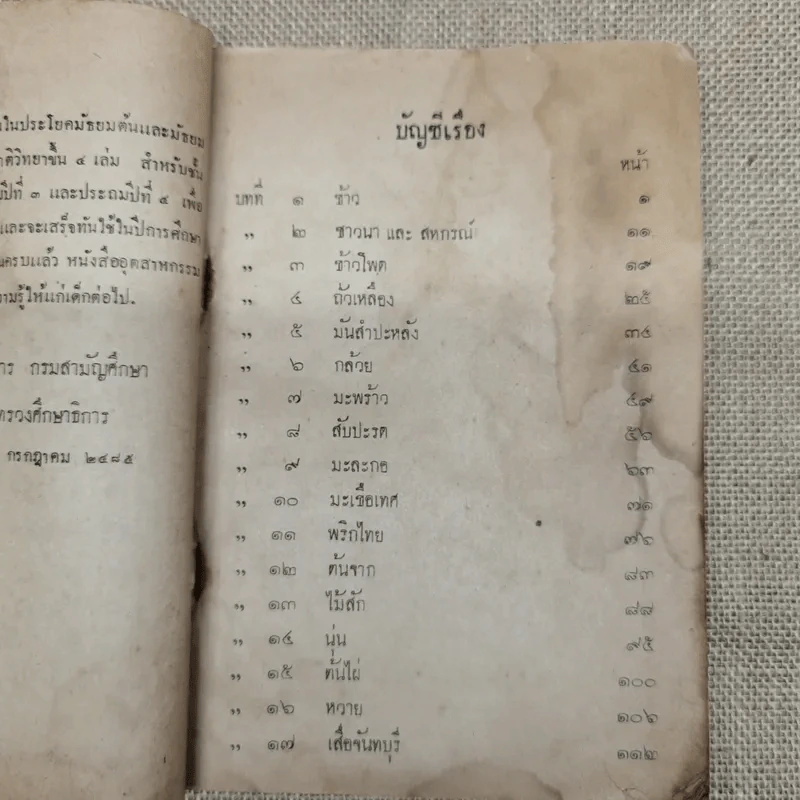 ในประโยคมัธยมต้นและมัธยม
วิทยาขึ้น ๔ เล่ม สำหรับชั้น
ปีที่ ๓ และประถมปีที่ ๔ เพื่อ
และจะเสร็จทันใช้ในปีการศึกษา
ครบแล้ว หนังสืออุตสาหกรรม
ความรู้ให้แก่เด็กต่อไป.
กรมสามัญศึกษา
ทรวงศึกษาธิการ
กรกฎาคม ๒๔๘๕
บัญชีเรื่อง
หน้า
บทที่ ๑ ข้าว ๑
,, ๒ ชาวนา และ สหกรณ์ ๑๑
,, ๓ ข้าวโพด ๑๙
,, ๔ ถั่วเหลือง ๒๕
,, ๕ มันสำปะหลัง ๓๔
,, ๖ กล้วย ๔๑
,, ๗ มะพร้าว ๔๙
,, ๘ สับปะรด ๕๖
,, ๙ มะละกอ ๖๓
,, ๑๐ มะเขือเทศ ๗๑
,, ๑๑ พริกไทย ๗๖
,, ๑๒ ต้นจาก ๘๓
,, ๑๓ ไม้สัก ๘๘
,, ๑๔ นุ่น ๙๕
,, ๑๕ ต้นไผ่ ๑๐๐
,, ๑๖ หวาย ๑๐๖
,, ๑๗ เสื่อจันทบุรี ๑๑๒